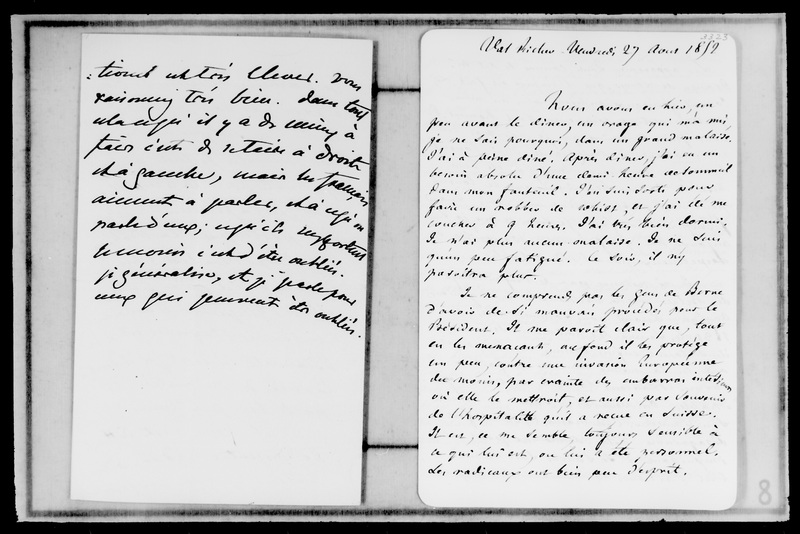 tionné et très élevé. Vous
raisonnez très bien. Dans tout
cela ce qu'il y a de mieux à
faire c'est de se taire à droite
et à gauche, mais les français
aiment à parler, et à ce qu'on
parle d'eux ; ce qu'ils supportent
le moins c'est d'être oubliés.
je généralise, et je parle pour
ceux qui peuvent être oubliés.
3323
Val Richer Vendredi 27 Aout 1852
Nous avons eu hier, un
peu avant le diner, un orage qui m'a mis,
je ne sais pourquoi, dans un grand malaise.
J'ai à peine diné. Après diner, j'ai eu un
besoin absolu d'une demi heure de sommeil
dans mon fauteuil. J'en suis sorti pour
faire un robber de whist, et j'ai été me
coucher à 9 heures. J'ai très bien dormi.
Je n'ai plus aucun malaise. Je ne suis
qu'un peu fatigué. Ce soir, il n'y
paroitra plus.
Je ne comprends pas les gens de Berne
d'avoir de si mauvais procédés pour le
Président. Il me paroit clair que, tout
en les menaçant, au fond il les protège
un peu, contre une invasion Européenne
du moins, par crainte des embarras intérieurs
où elle le mettroit, et aussi par souvenir
de l'hospitalité qu'il a reçue en Suisse.
Il est, ce me semble, toujours sensible à
ce qui lui est, ou lui a été personnel.
Les radicaux ont bien peu d'esprit.
8